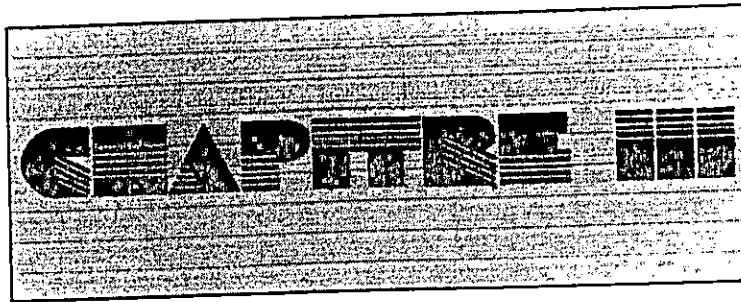 CHAPITRE III